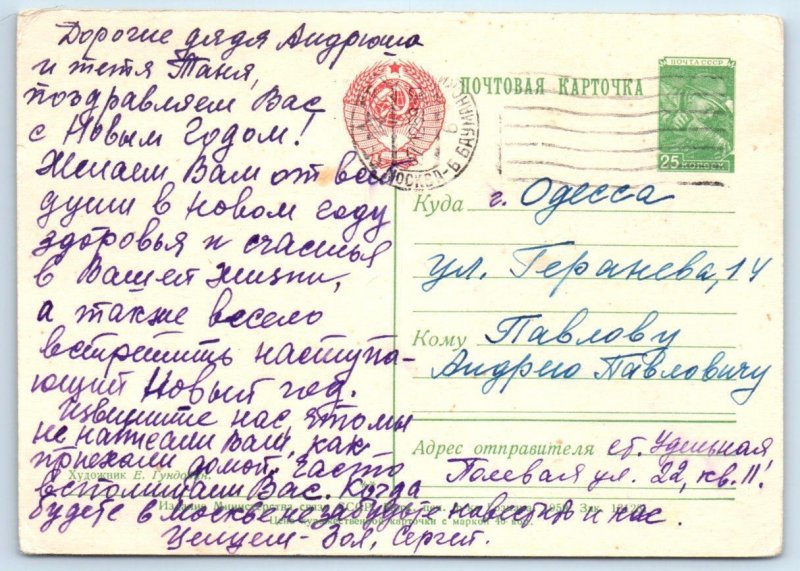 Дорогие дядя Андрюша
и тетя Таня,
поздравляем Вас
с Новым Годом!
Желаем Вам от всей
души в новом году
здоровья и счастья
в Вашей жизни,
а также весело
встретить наступа-
ющий Новый год.
Извините нас что мы
не написали Вам, как
приехали домой. Часто
вспоминаем Вас. Когда
будете в Москве не забудьте навестить и нас.
Целуем - Зоя, Сергей.
Художник Е. Гундобин.
ПОЧТОВАЯ КАРТОЧКА
ПОЧТА СССР
25 КОПЕЕК
МОСКВА-Б БАУМАНСК
Куда г. Одесса
ул. Геранева, 14
Кому Павлову
Андрею Павловичу
Адрес отправителя ст. Удельная
Полевая ул. 22, кв. 11.
Издание Министерства связи СССР
Цена художественной карточки с маркой 40 коп.